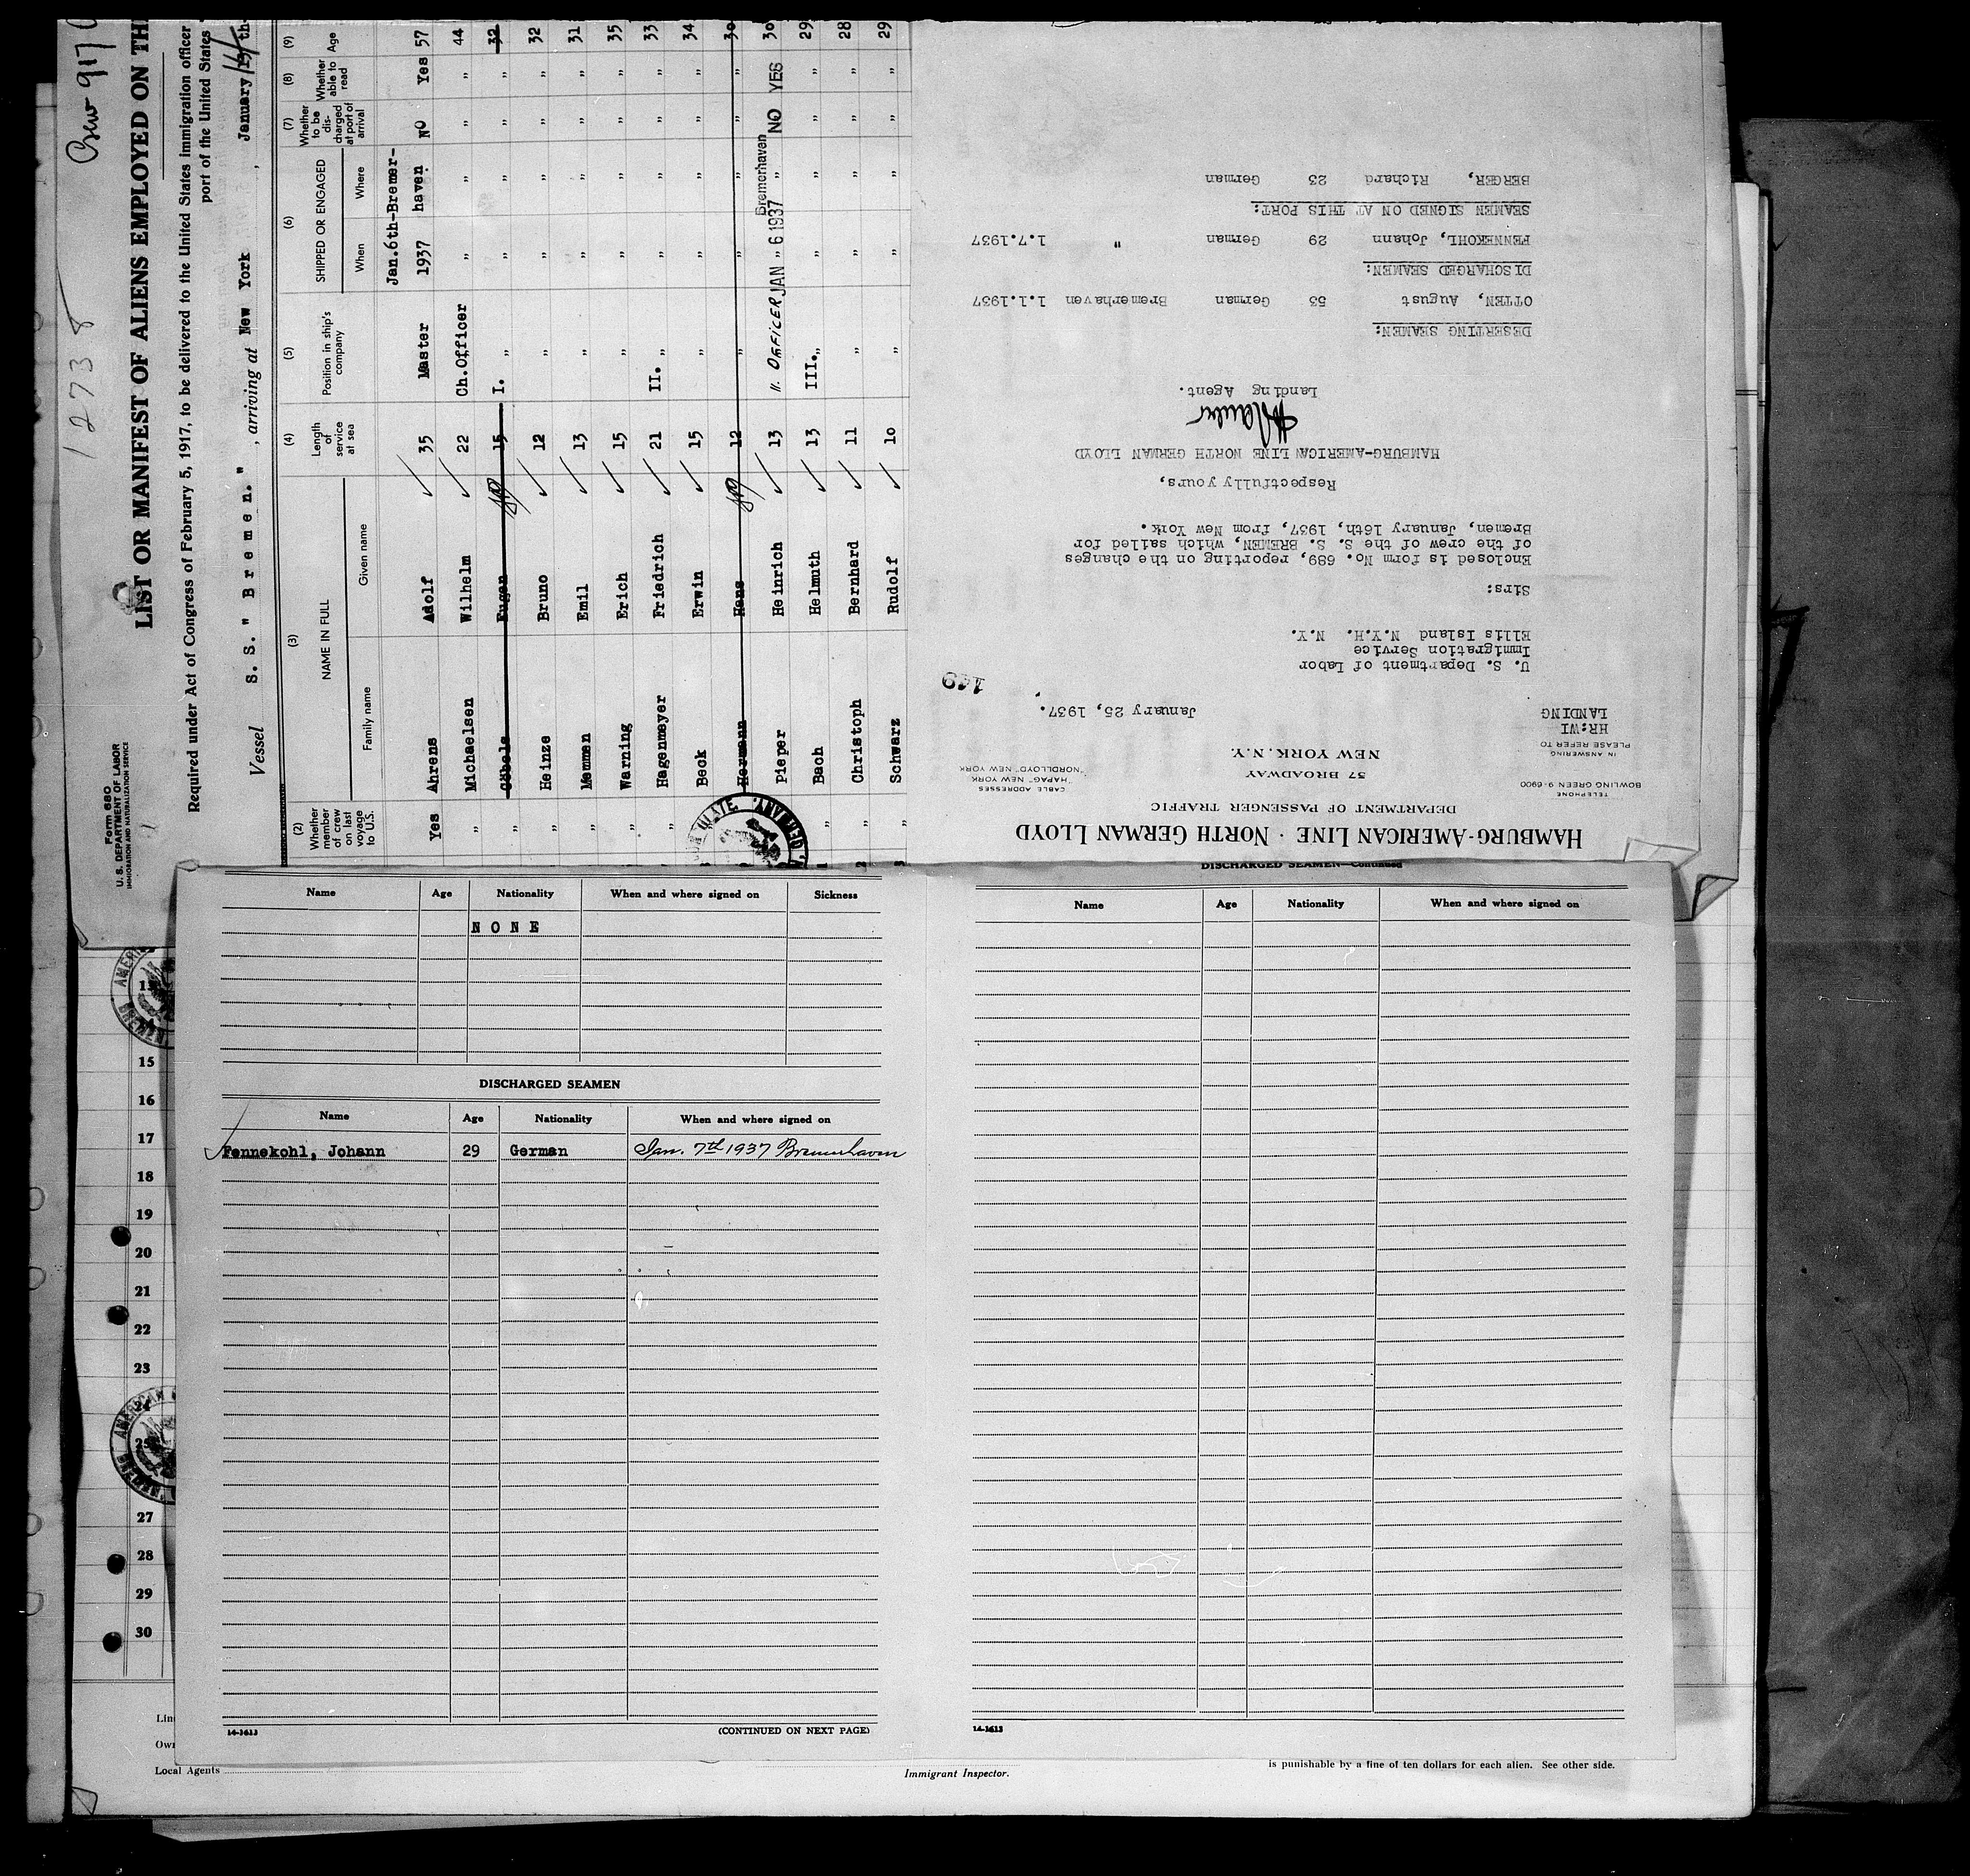 Crew 917
12738
Form 680
U. S. DEPARTMENT OF LABOR
IMMIGRATION AND NATURALIZATION SERVICE
LIST OR MANIFEST OF ALIENS EMPLOYED ON TH
Required under Act of Congress of February 5, 1917, to be delivered to the United States immigration officer
port of the United States
Vessel S. S. " Bremen." , arriving at New York , January th-
(2) (3) (4) (5) (6) (7) (8) (9)
Whether member of crew on last voyage to U.S. NAME IN FULL Length of service at sea Position in ship's company SHIPPED OR ENGAGED Whether to be discharged at port of arrival Whether able to read Age
Family name Given name When Where
Jan.6th-Bremer-
Yes Ahrens Adolf 35 Master 1937 haven NO Yes 57
" Michaelsen Wilhelm 22 Ch.Officer " " " " 44
" Göbels Eugen 15 I. " " " " " 32
" Heinze Bruno 12 " " " " " 32
" Memmen Emil 13 " " " " " 31
" Warning Erich 15 " " " " " 35
" Hagenmeyer Friedrich 21 II. " " " " 33
Beck Erwin 15 " " " " " 34
Hermann Hans 12 " " " " " 30
Pieper Heinrich 13 II. OFFICER JAN 6 1937 Bremerhaven NO YES 30
" Bach Helmuth 13 III. " " " " " 29
" Christoph Bernhard 11 " " " " " 28
" Schwarz Rudolf 10 " " " " " 29
HAMBURG-AMERICAN LINE · NORTH GERMAN LLOYD
DEPARTMENT OF PASSENGER TRAFFIC
57 BROADWAY
NEW YORK, N.Y.
TELEPHONE
BOWLING GREEN 9-6900
CABLE ADDRESSES
"HAPAG" NEW YORK
"NORDLLOYD" NEW YORK
IN ANSWERING
PLEASE REFER TO
HR:WI
LANDING
January 25, 1937.
149
U. S. Department of Labor
Immigration Service
Ellis Island N.Y.H. N.Y.
Sirs:
Enclosed is form No. 689, reporting on the changes
of the crew of the S. S. BREMEN, which sailed for
Bremen, January 16th, 1937, from New York.
Respectfully yours,
HAMBURG-AMERICAN LINE NORTH GERMAN LLOYD
Landing Agent.
DESERTING SEAMEN:
OTTEN, August 53 German Bremerhaven 1.1.1937
DISCHARGED SEAMEN:
FENNEKOHL, Johann 29 German " 1.7.1937
SEAMEN SIGNED ON AT THIS PORT:
BERGER, Richard 23 German
Name Age Nationality When and where signed on Sickness
NONE
DISCHARGED SEAMEN
Name Age Nationality When and where signed on
Fennekohl, Johann 29 German Jan. 7th 1937 Bremerhaven
14-1613 (CONTINUED ON NEXT PAGE)
DISCHARGED SEAMEN—Continued
Name Age Nationality When and where signed on
14-1613
15
16
17
18
19
20
21
22
23
27
28
29
30
Local Agents
Immigrant Inspector.
is punishable by a fine of ten dollars for each alien. See other side.